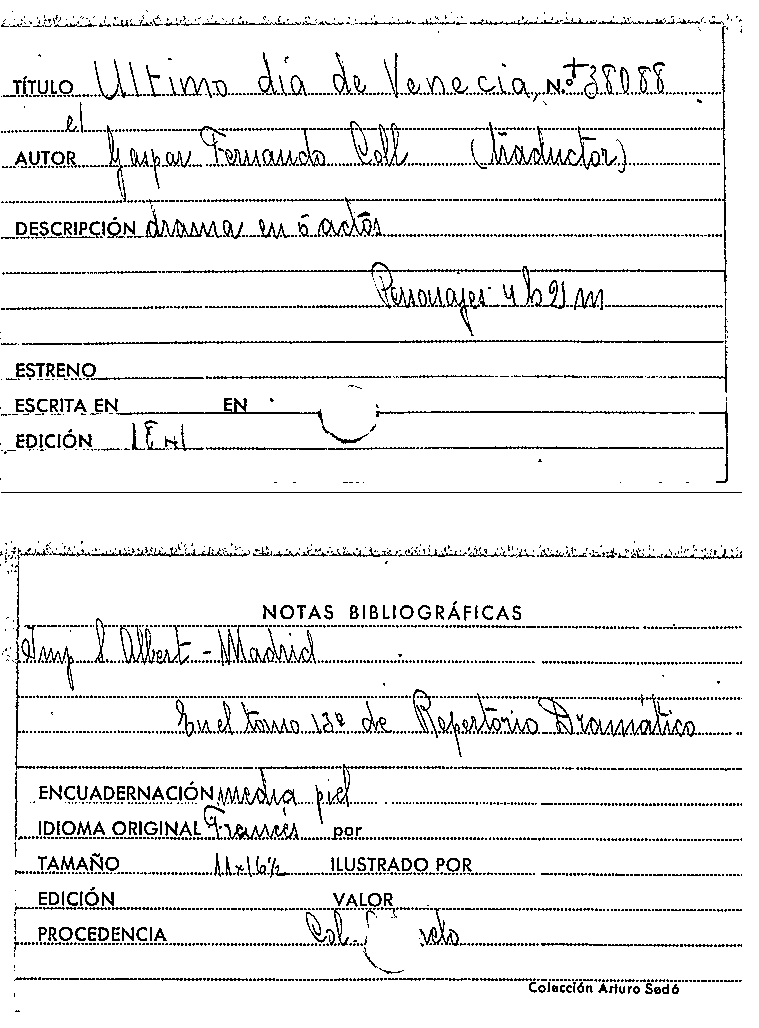 TÍTULO Ultimo día de Venecia, N.º +38088
el
AUTOR Gaspar Fernando Coll (traductor)
DESCRIPCIÓN drama en 5 actos
Personajes 4 h 21 m
ESTRENO
ESCRITA EN EN
EDICIÓN
NOTAS BIBLIOGRÁFICAS
Imp S. Albert - Madrid
En el tomo 13º de Repertorio Dramático
ENCUADERNACIÓN media piel
IDIOMA ORIGINAL Francés por
TAMAÑO 11x16½ ILUSTRADO POR
EDICIÓN VALOR
PROCEDENCIA Col.
Colección Arturo Sedó